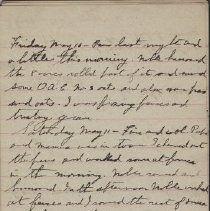 Friday May 10 - Rain last night and
a little this morning. Noble harrowed
the 5 acres rolled part of it and sowed
some O.A.C. No 3 oats and also some peas
and oats. I was fixing fences and
treating grain
Saturday May 11 - Fine and cool Papa
and mama was in town. I cleaned out
the pens and worked some at fences
in the morning. Noble sowed and
harrowed. In the afternoon Noble worked
at fences and I sowed the rest of